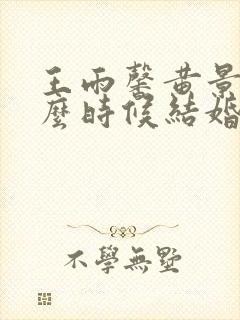 王雨馨黄景
麼時候結婚
不學無墅